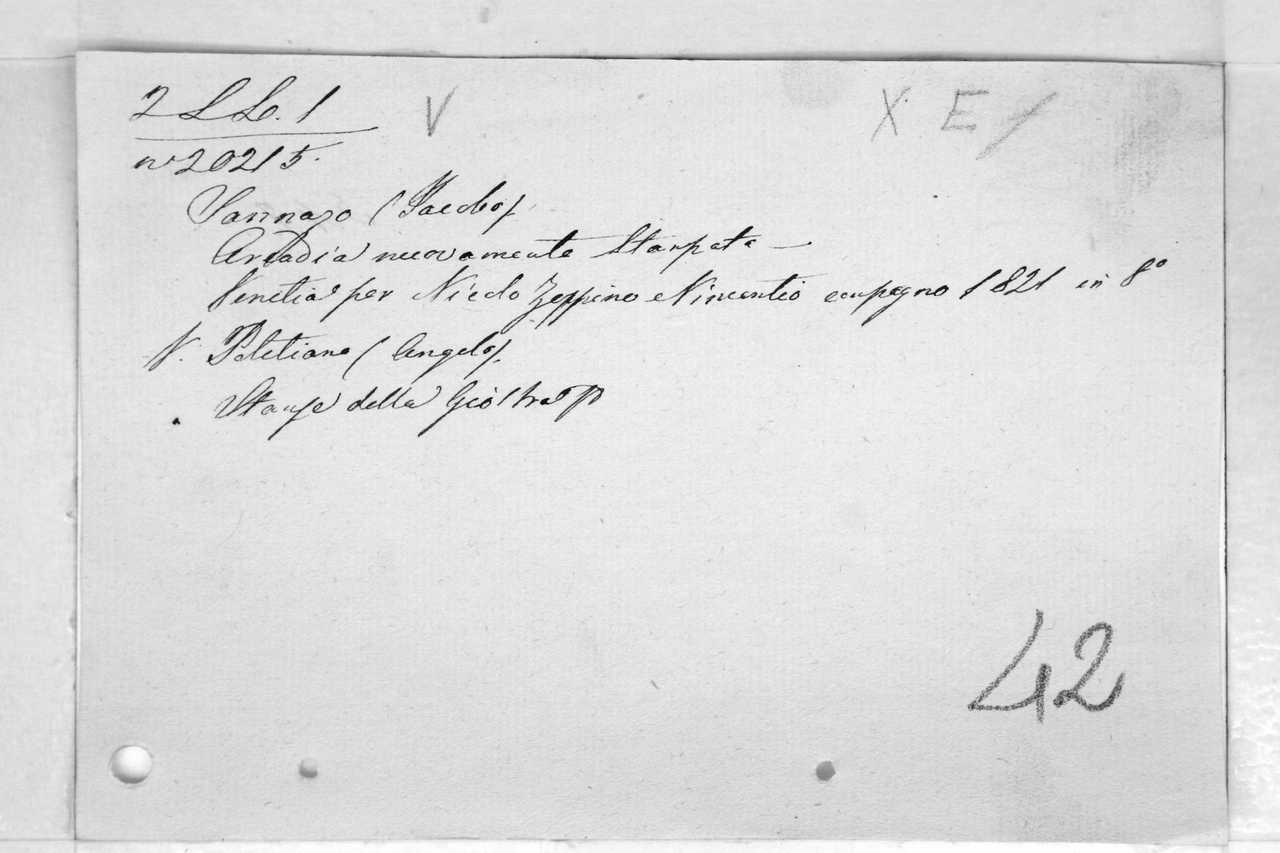 2 LL. 1 V X E /
nº 20215.
Sannazo (Jacobo)
Arcadia nuovamente Stampata —
Venetia per Nicolo Zoppino e Vincentio compagno 1821 in 8º
V. Politiano (Angelo)
Stanze della Giostra
42